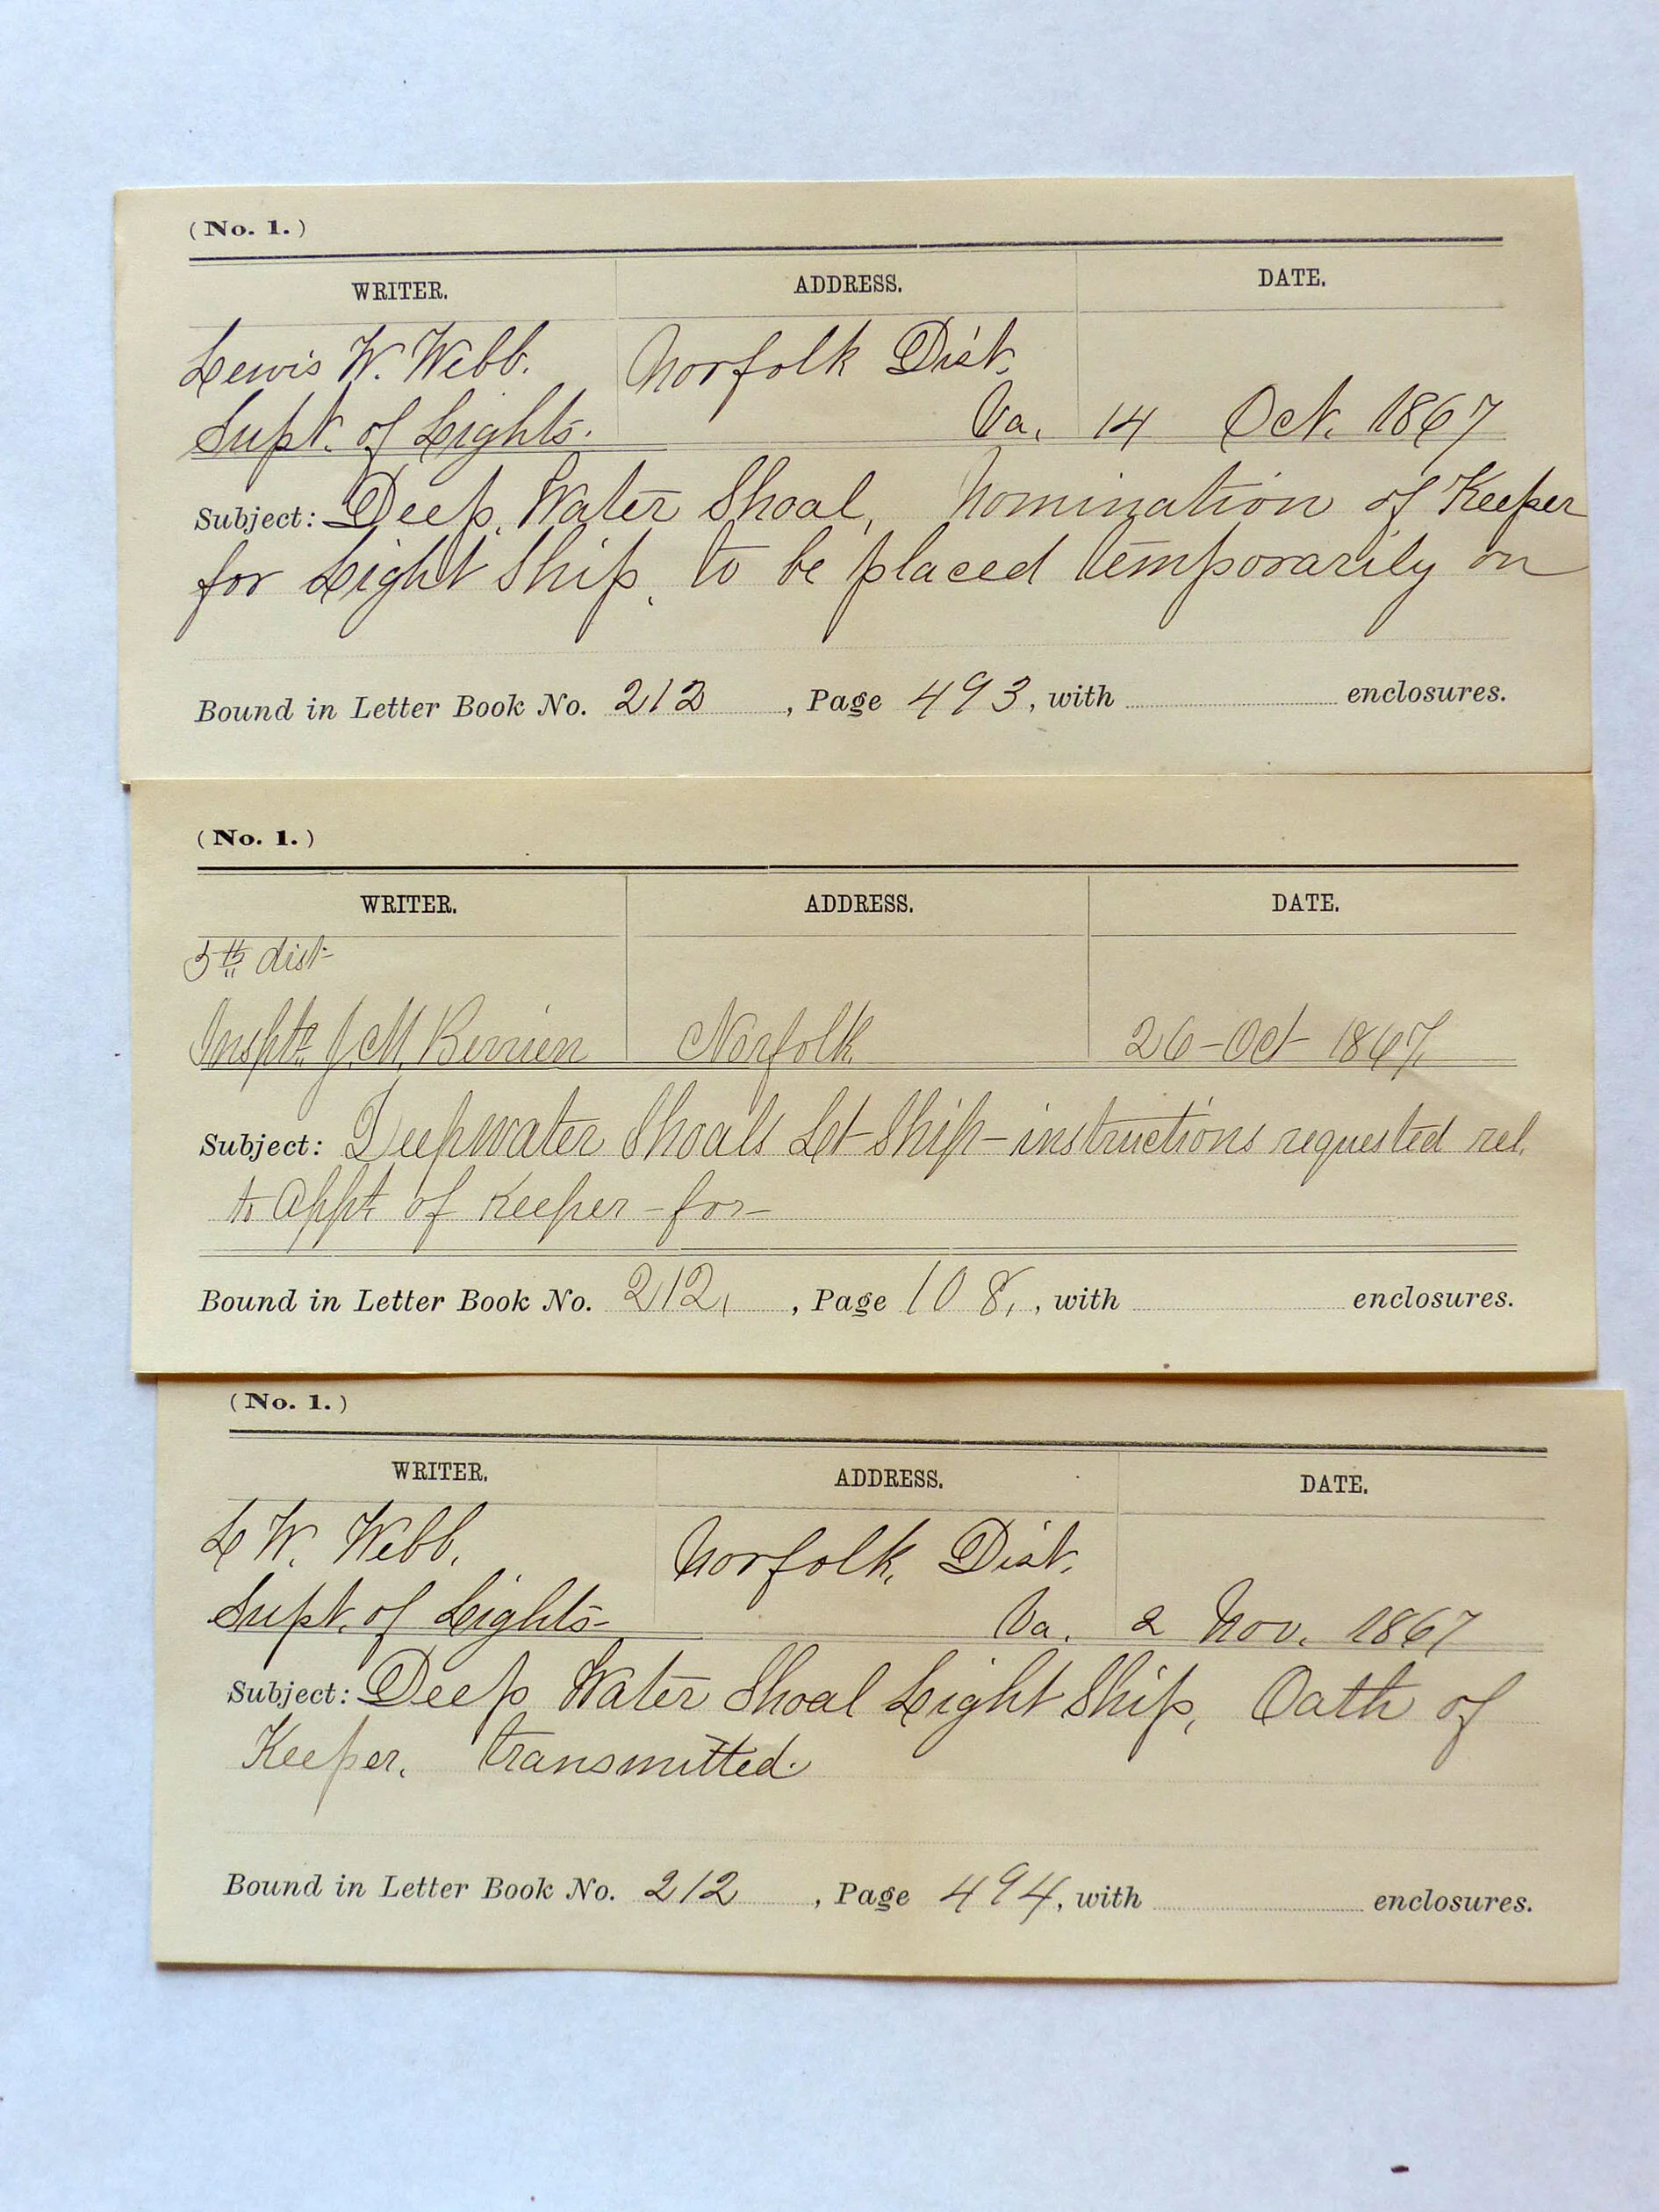 (No. 1.)
WRITER. ADDRESS. DATE.
Lewis W. Webb. Norfolk Dist.
Supt. of Lights. Va. 14 Oct. 1867
Subject: Deep Water Shoal, Nomination of Keeper
for Light Ship, to be placed temporarily on
Bound in Letter Book No. 212, Page 493, with enclosures.
(No. 1.)
WRITER. ADDRESS. DATE.
5th dist
Inspt. J. M. Berrien Norfolk 26-Oct 1867,
Subject: Deepwater Shoals Lt-Ship-instructions requested rel.
to appt of Keeper-for-
Bound in Letter Book No. 212, , Page 108, , with enclosures.
(No. 1.)
WRITER. ADDRESS. DATE.
L W. Webb. Norfolk, Dist.
Supt. of Lights- Va. 2 Nov. 1867
Subject: Deep Water Shoal Light Ship, Oath of
Keeper, transmitted.
Bound in Letter Book No. 212, Page 494, with enclosures.